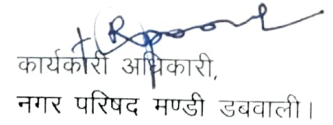 कार्यकारी अधिकारी,
नगर परिषद मण्डी डबवाली।